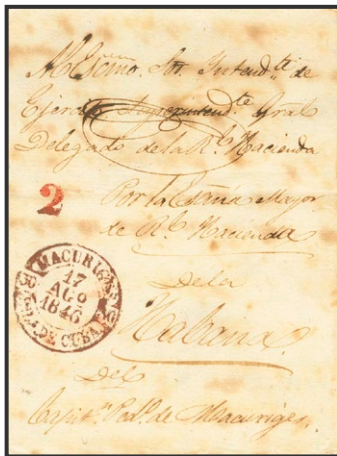 Al Escmo. Sor. Intendte. de
Ejercito Superintendte. Gral
Delegado de la Rl. Hacienda
2
Por la Esnia. Mayor
de Rl. Hacienda
MACURIGES
17
AGO
1846
DE CUBA
De la
Habana.
Del
Capitn. Pedo. de Macuriges.